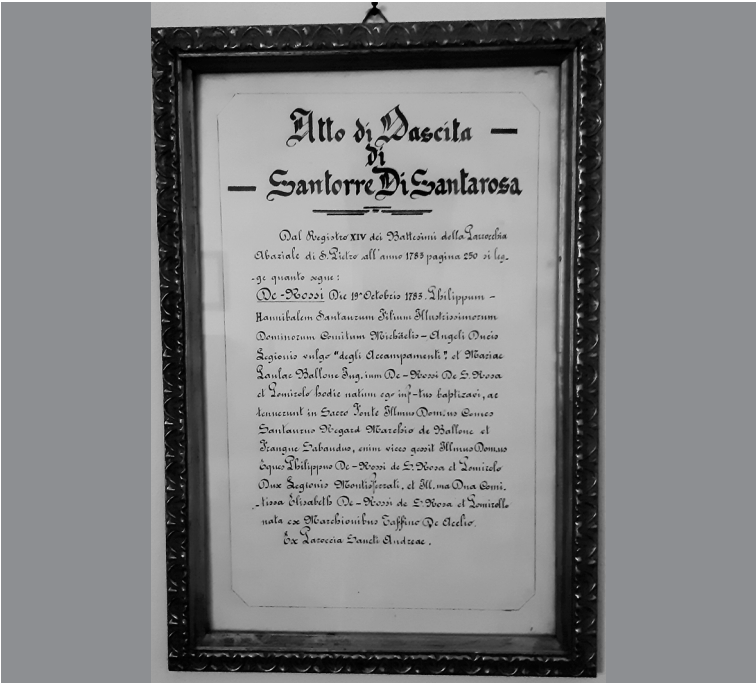 Atto di Nascita —
di
— Santorre Di Santarosa
Dal Registro XIV dei Battesimi della Parrocchia
Abaziale di S. Pietro all'anno 1783 pagina 250 si leg-
-ge quanto segue:
De-Rossi Die 19ª Octobris 1783. Philippum -
Hannibalem Santaurum Filium Illustrissimorum
Dominorum Comitum Michäelis - Angeli Ducis
Legionis vulgo "degli Accampamenti" et Mariae
Paulae Ballone Jug.ium De-Rossi De S. Rosa
et Pomirolo hodie natum ego inf-tus baptizavi, ac
tenuerunt in Sacro Fonte Illmus Dom.us Comes
Santaurus Regard Marchio de Ballone et
Frangue Sabaudus, enim vices gessit Illmus Dom.us
Eques Philippus De-Rossi de S. Rosa et Pomirolo
Dux Legionis Montisferrati, et Ill.ma Dna Comi-
-tissa Elisabeth De-Rossi de S. Rosa et Pomirollo
nata ex Marchionibus Taffino De Acelio.
Ex Paroccia Sancti Andreae.